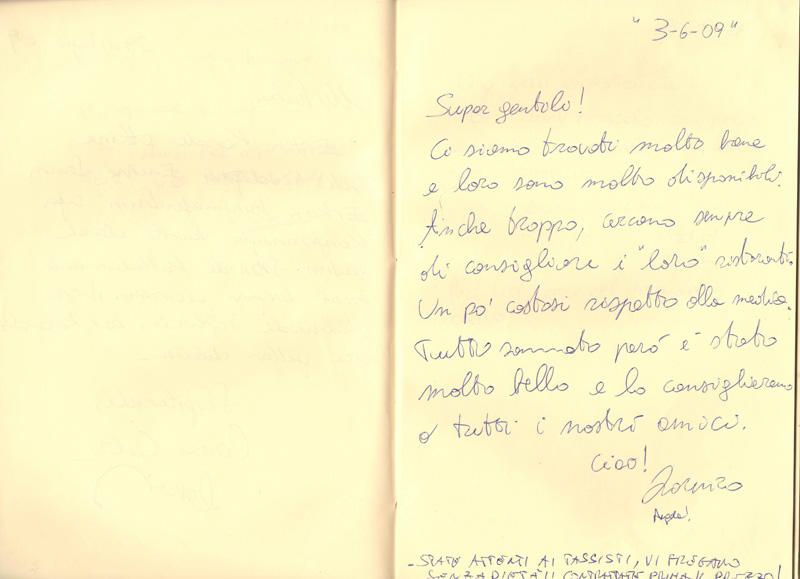 " 3-6-09 "
Super gentili!
Ci siamo trovati molto bene
e loro sono molto disponibili.
Anche troppo, cercano sempre
di consigliare i "loro" ristoranti.
Un po' costosi rispetto alla media.
Tutto sommato però è stato
molto bello e lo consiglieremo
a tutti i nostri amici.
Ciao!
Lorenzo
- STATE ATTENTI AI TASSISTI, VI FREGANO
SENZA PIETÀ!! CONTRATTATE PRIMA IL PREZZO!